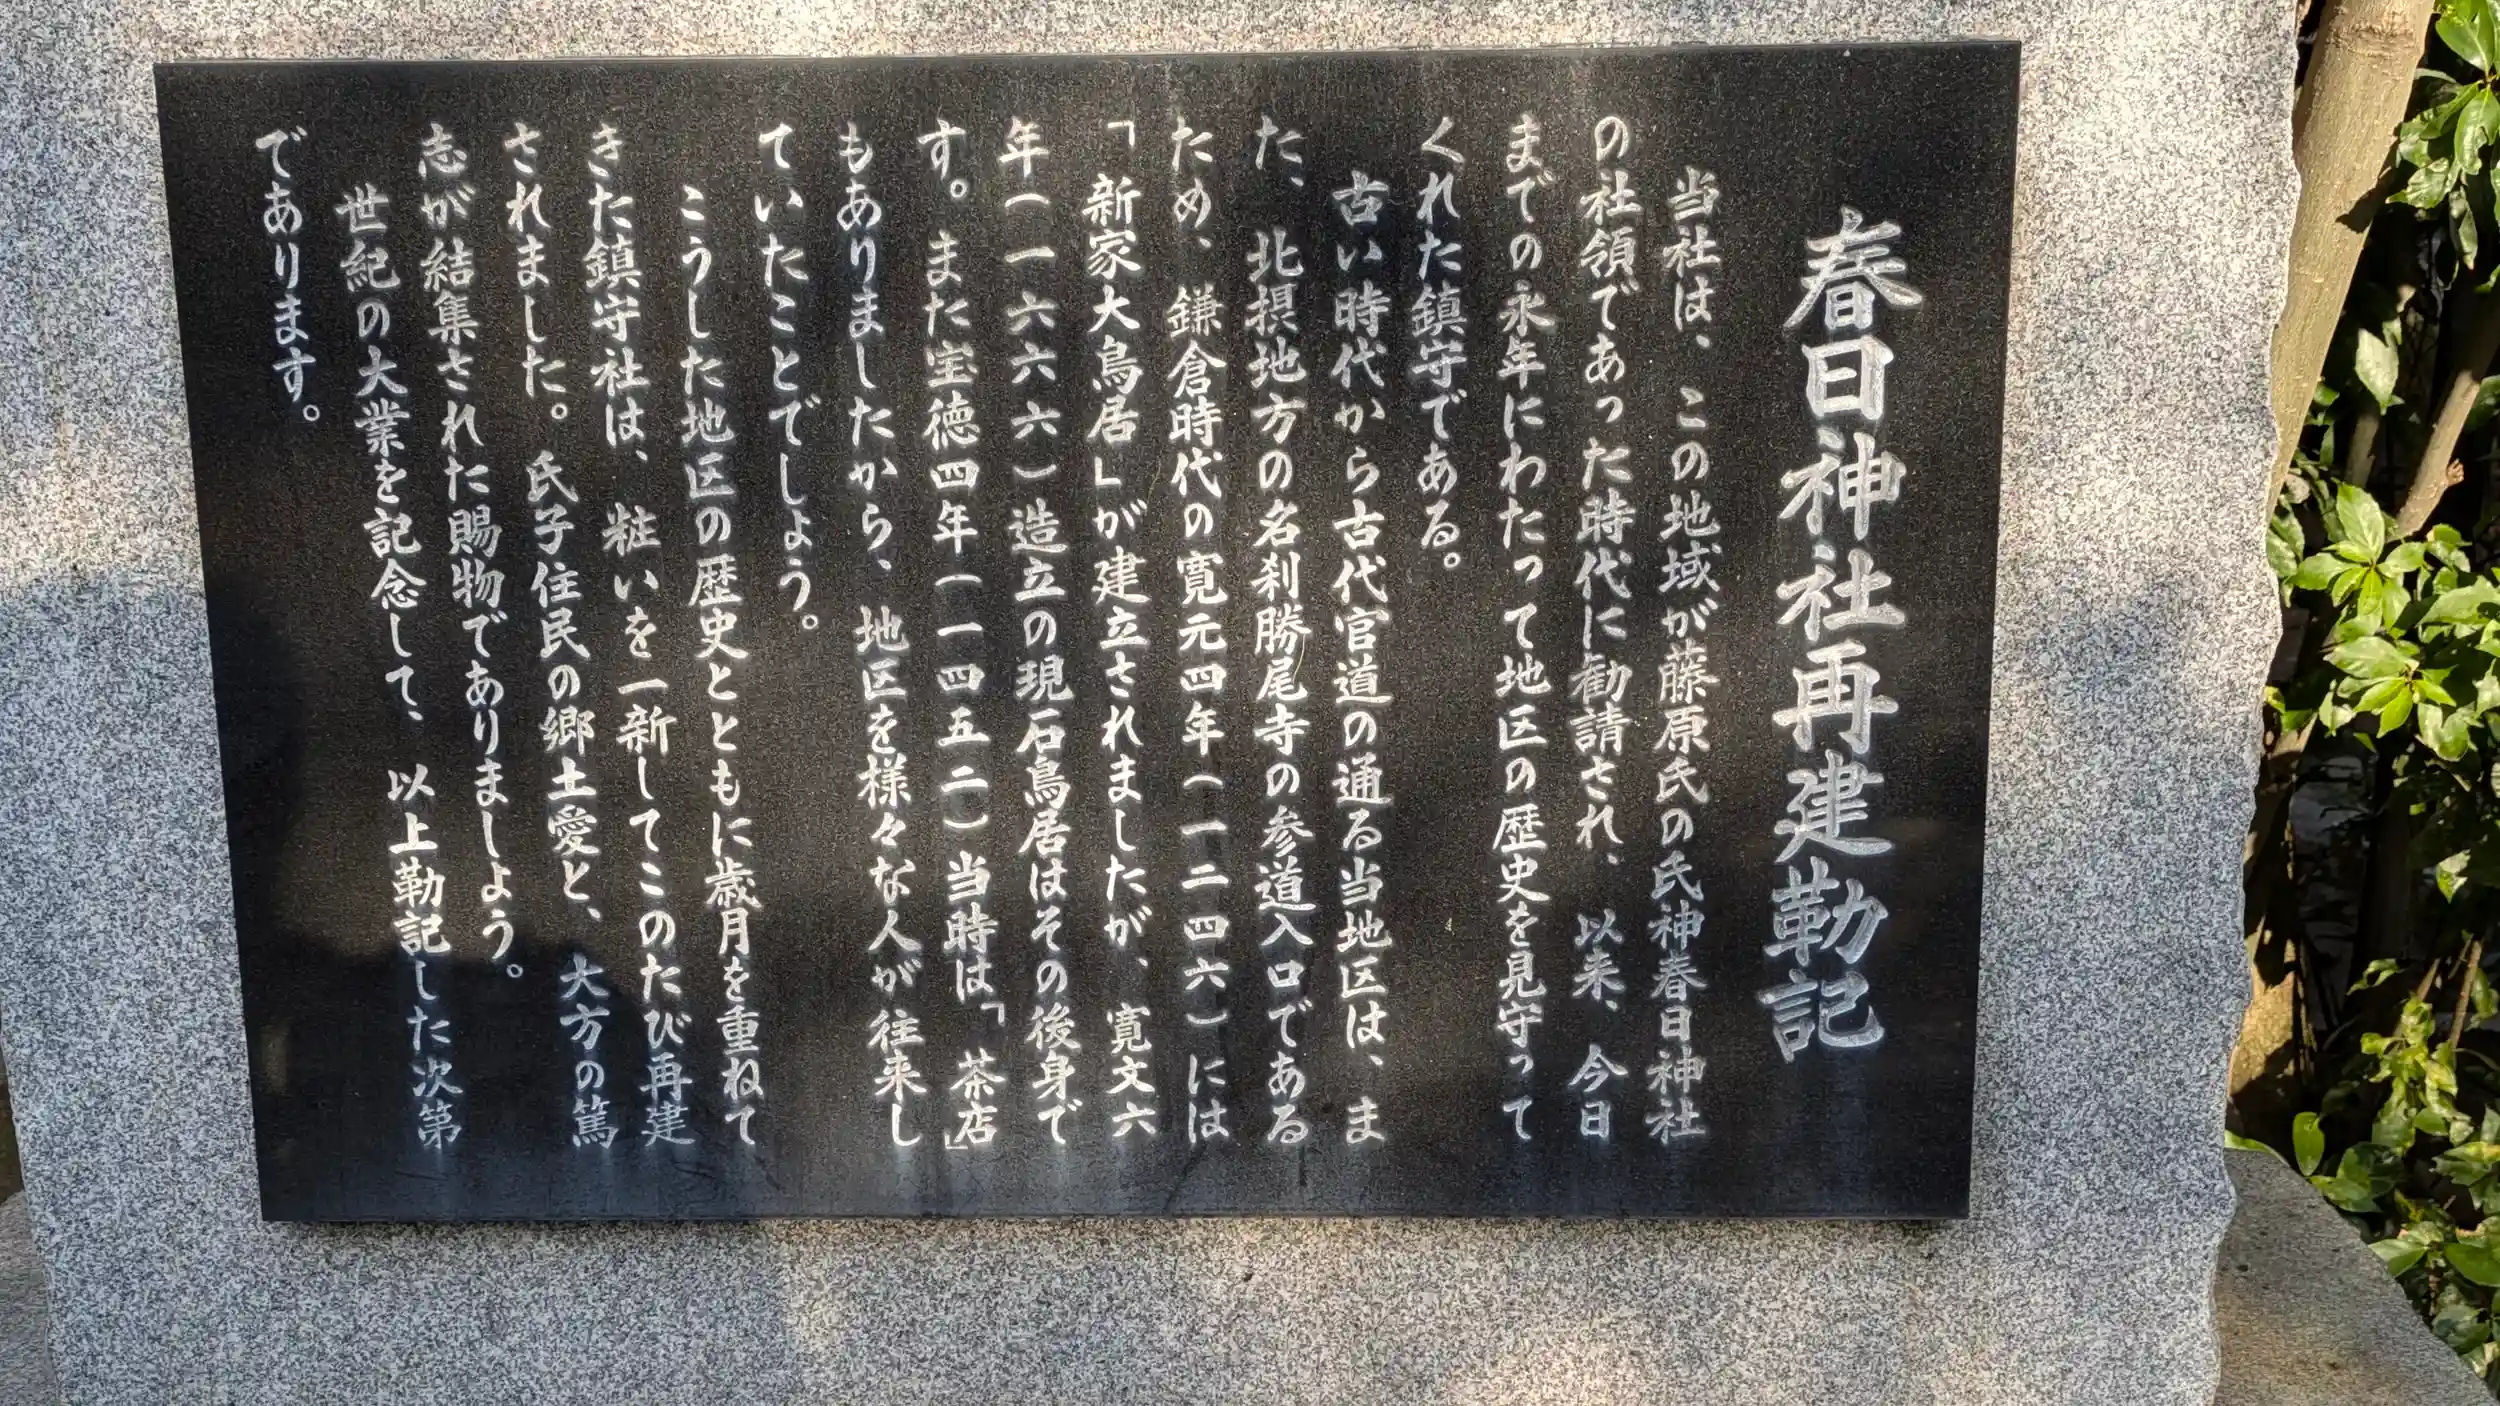 春日神社再建勒記
当社は、この地域が藤原氏の氏神春日神社
の社領であった時代に勧請され、以来、今日
までの永年にわたって地区の歴史を見守って
くれた鎮守である。
古い時代から古代官道の通る当地区は、ま
た、北摂地方の名刹勝尾寺の参道入口である
ため、鎌倉時代の寛元四年(一二四六)には
「新家大鳥居」が建立されましたが、寛文六
年(一六六六)造立の現石鳥居はその後身で
す。また宝徳四年(一四五二)当時は、「茶店」
もありましたから、地区を様々な人が往来し
ていたことでしょう。
こうした地区の歴史とともに歳月を重ねて
きた鎮守社は、粧いを一新してこのたび再建
されました。氏子住民の郷土愛と、大方の篤
志が結集された賜物でありましょう。
世紀の大業を記念して、以上勒記した次第
であります。